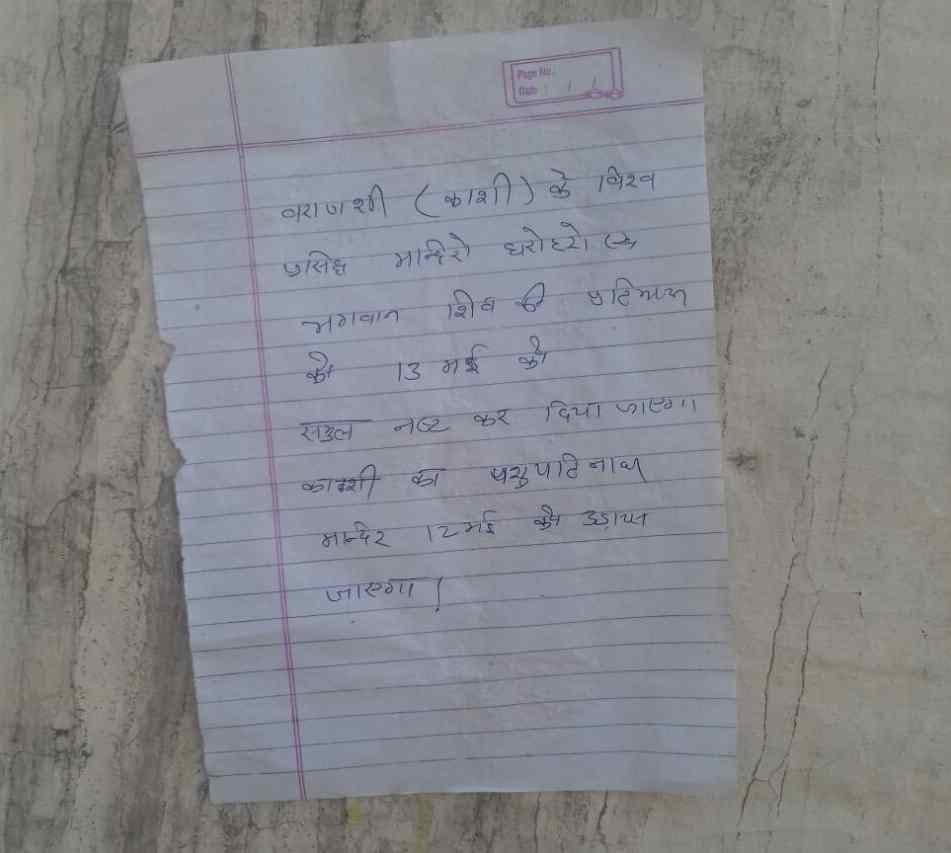 Page No.
Date
वराणशी (काशी) के विश्व
प्रसिद्ध मान्दिरो धरोहरो एंव
भगवान शिव की प्रतिमाय
को 13 मई को
समुल नष्ट कर दिया जाएगा।
काशी का पशुपतिनाथ
मान्दिर 12 मई को उड़ाया
जाएगा।